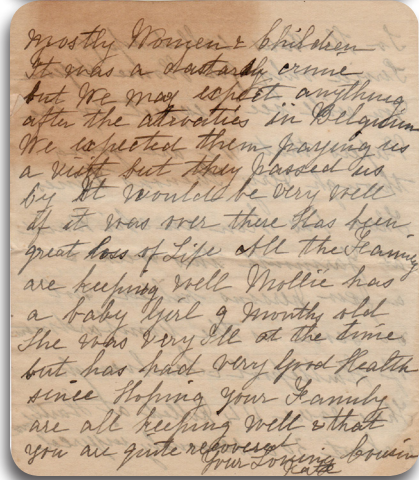 mostly Women & Children
It was a dastardly crime
but We may expect anything
after the atrocities in Belgium
We expected them paying us
a visit but they passed us
by It would be very well
if it was over there Has been
great loss of Life All the Family
are keeping well Mollie has
a baby Girl 9 months old
She was very Ill at the time
but has had very Good Health
since Hoping your Family
are all keeping well & that
you are quite recovered
Your Loving Cousin
Kate